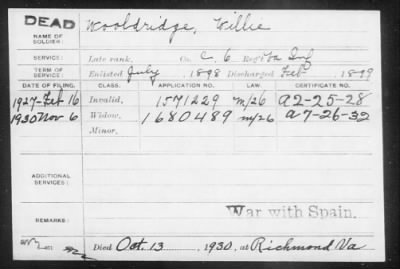 DEAD
Wooldridge, Willie
NAME OF SOLDIER:
SERVICE: Late rank, Co. C. 6 Reg't Va Inf
TERM OF SERVICE: Enlisted July, 1898 Discharged Feb 1899
DATE OF FILING. CLASS. APPLICATION NO. LAW. CERTIFICATE NO.
1927-Feb 16 Invalid, 1571229 m/26 A2-25-28
1930 Nov 6 Widow, 1680489 m/26 A7-26-32
Minor,
ADDITIONAL SERVICES:
War with Spain.
REMARKS:
Died Oct. 13, 1930, at Richmond Va